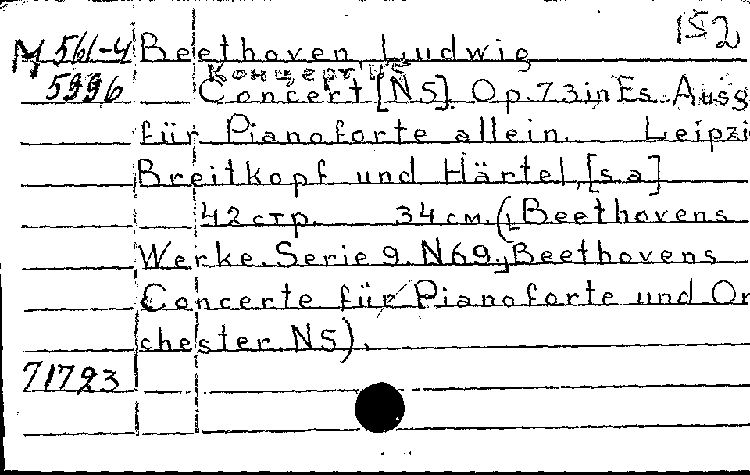 152
М 561-4 Beethoven, Ludwig
Концерт №5
5996 Concert [N5]. Op.73 in Es. Ausg
für Pianoforte allein. Leipzi
Breitkopf und Härtel, [s.a]
42 стр. 34 см. (Beethovens
Werke. Serie 9. N69. Beethovens
Concerte für Pianoforte und Or
chester N5).
71723